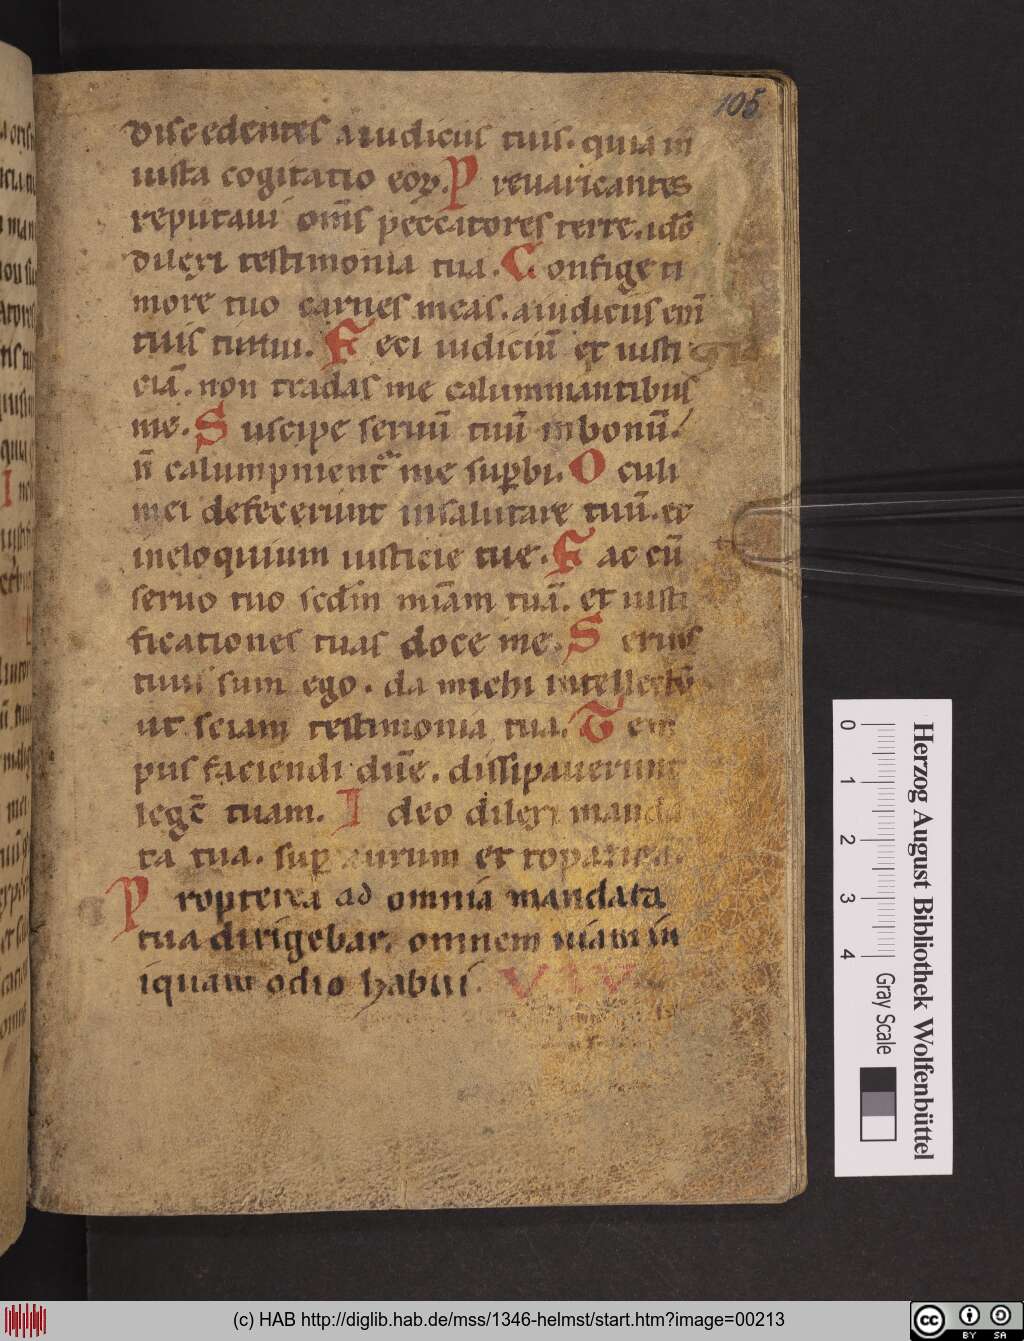 105
discedentes a iudiciis tuis. quia in
iusta cogitatio eoꝝ. P reuaricantes
reputaui om̄s peccatores terre. id̄o
dilexi testimonia tua. C onfige ti
more tuo carnes meas. a iudiciis eni᷑
tuis timui. F eci iudiciū et iusti
ciā. non tradas me calumniantibus
me. S uscipe seruū tuū in bonū.
n̄ calumpnient᷑ me suꝑbi. O culi
mei defecerunt in salutare tuū. et
in eloquium iusticie tue. F ac cū
seruo tuo scd̄m mīam tuā. et iusti
ficationes tuas doce me. S eruus
tuus sum ego. da michi intellectū
ut sciam testimonia tua. T em
pus faciendi dn̄e. dissipauerunt
legē tuam. I deo dilexi manda
ta tua. suꝑ aurum et topazion.
P ropterea ad omnia mandata
tua dirigebar. omnem uiam in
iquam odio habui.
Herzog August Bibliothek Wolfenbüttel
0 1 2 3 4
Gray Scale
(c) HAB http://diglib.hab.de/mss/1346-helmst/start.htm?image=00213
cc BY SA